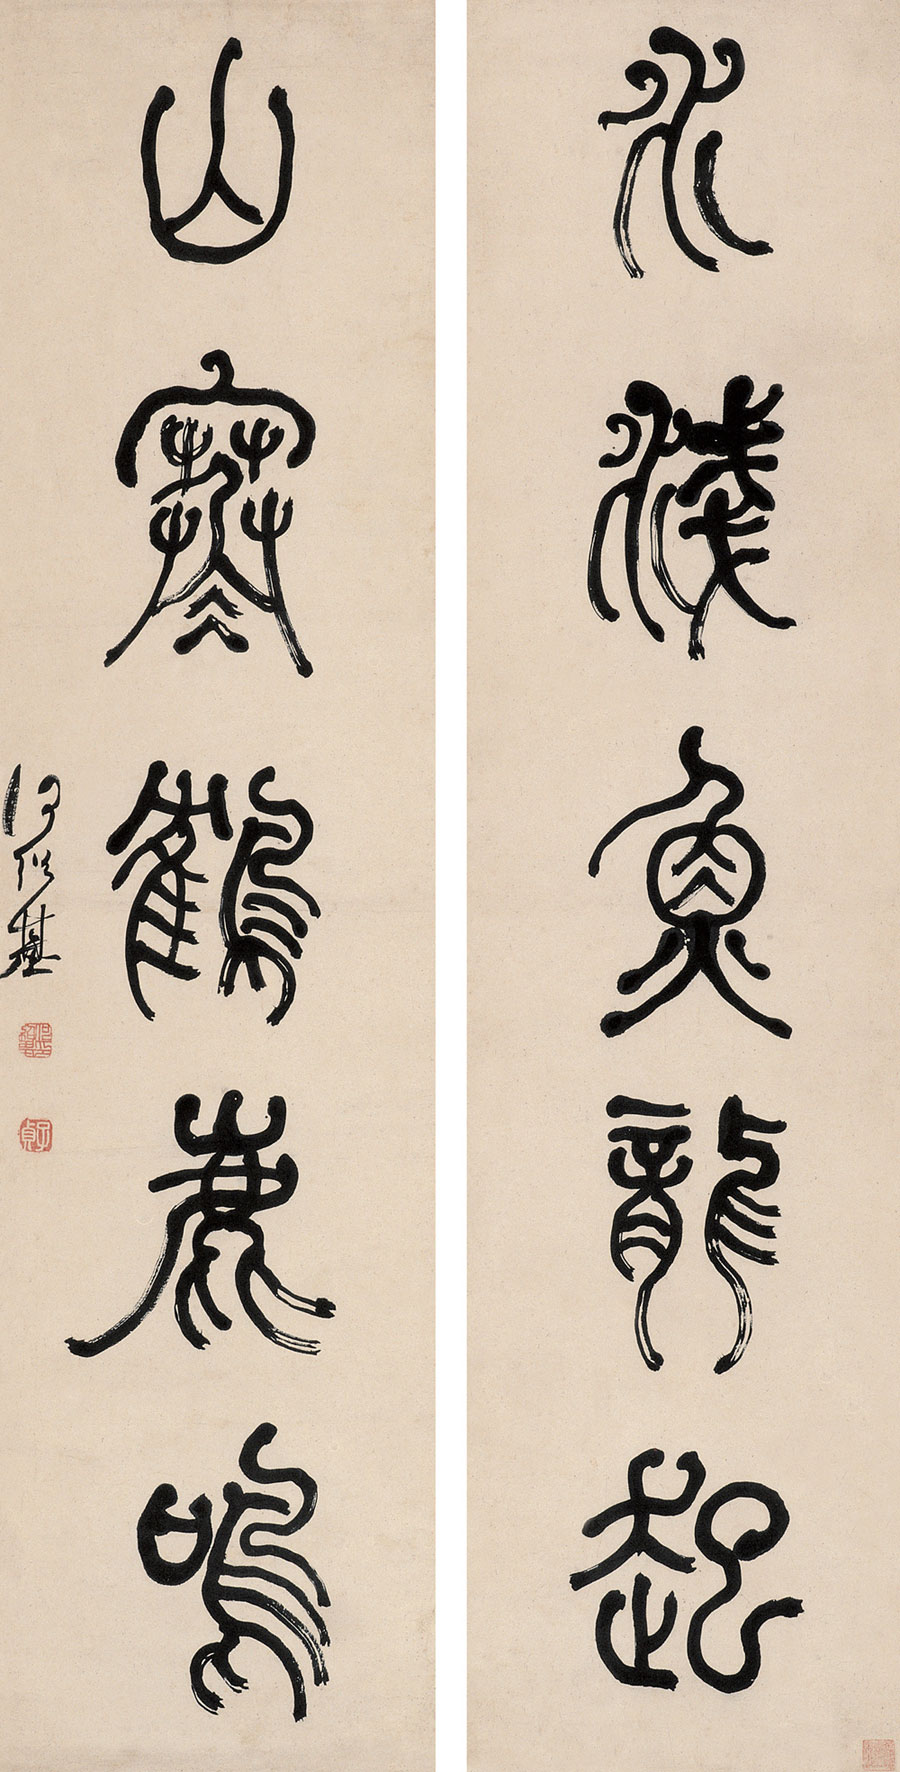 水淺魚龍起
山寒鶴鹿鳴
何紹基
子貞